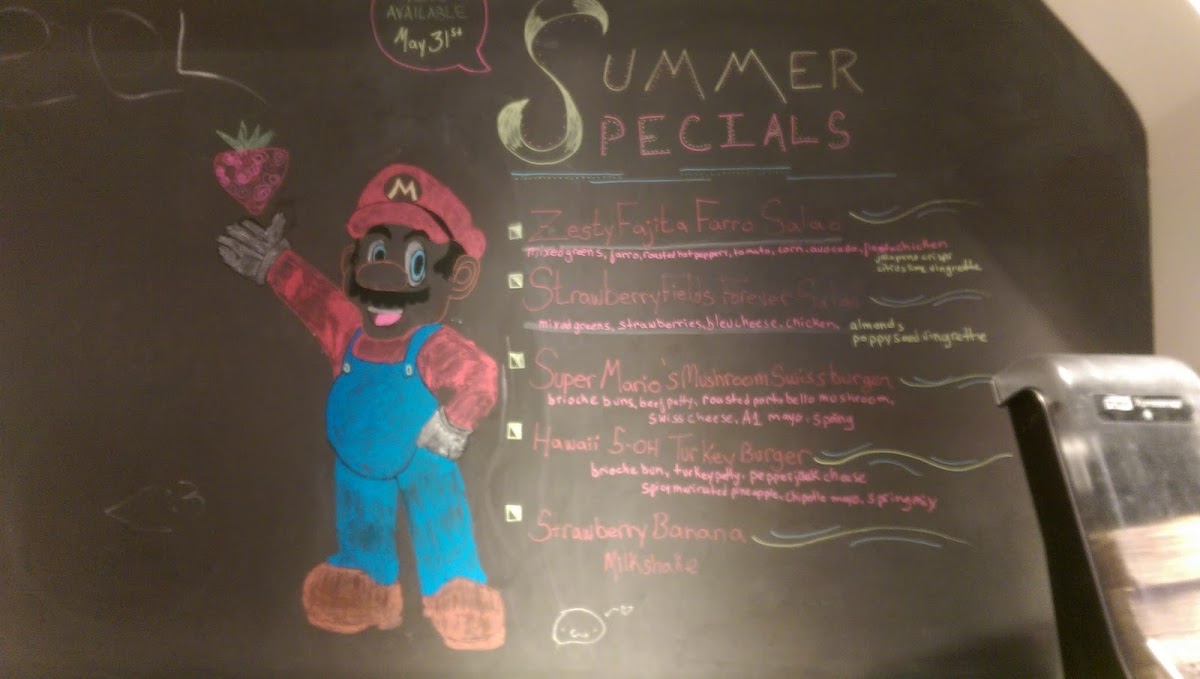 OOL
AVAILABLE
May 31st
SUMMER
SPECIALS
M
Zesty Fajita Farro Salad
mixed greens, farro, roasted hot peppers, tomato, corn, avocado, chicken
jalapeno crisps
vingrette
Strawberry Fields Forever Salad
mixed greens, strawberries, bleu cheese, chicken, almonds
poppy seed vingrette
Super Mario's Mushroom Swiss burger
brioche buns, beef patty, roasted portabello moshroom,
swiss cheese, A1 mayo, spring
Hawaii 5-OH Turkey Burger
brioche bun, turkey patty, pepper jack cheese
spicy marinated pineapple, chipotle mayo, spring mix
Strawberry Banana
Milkshake